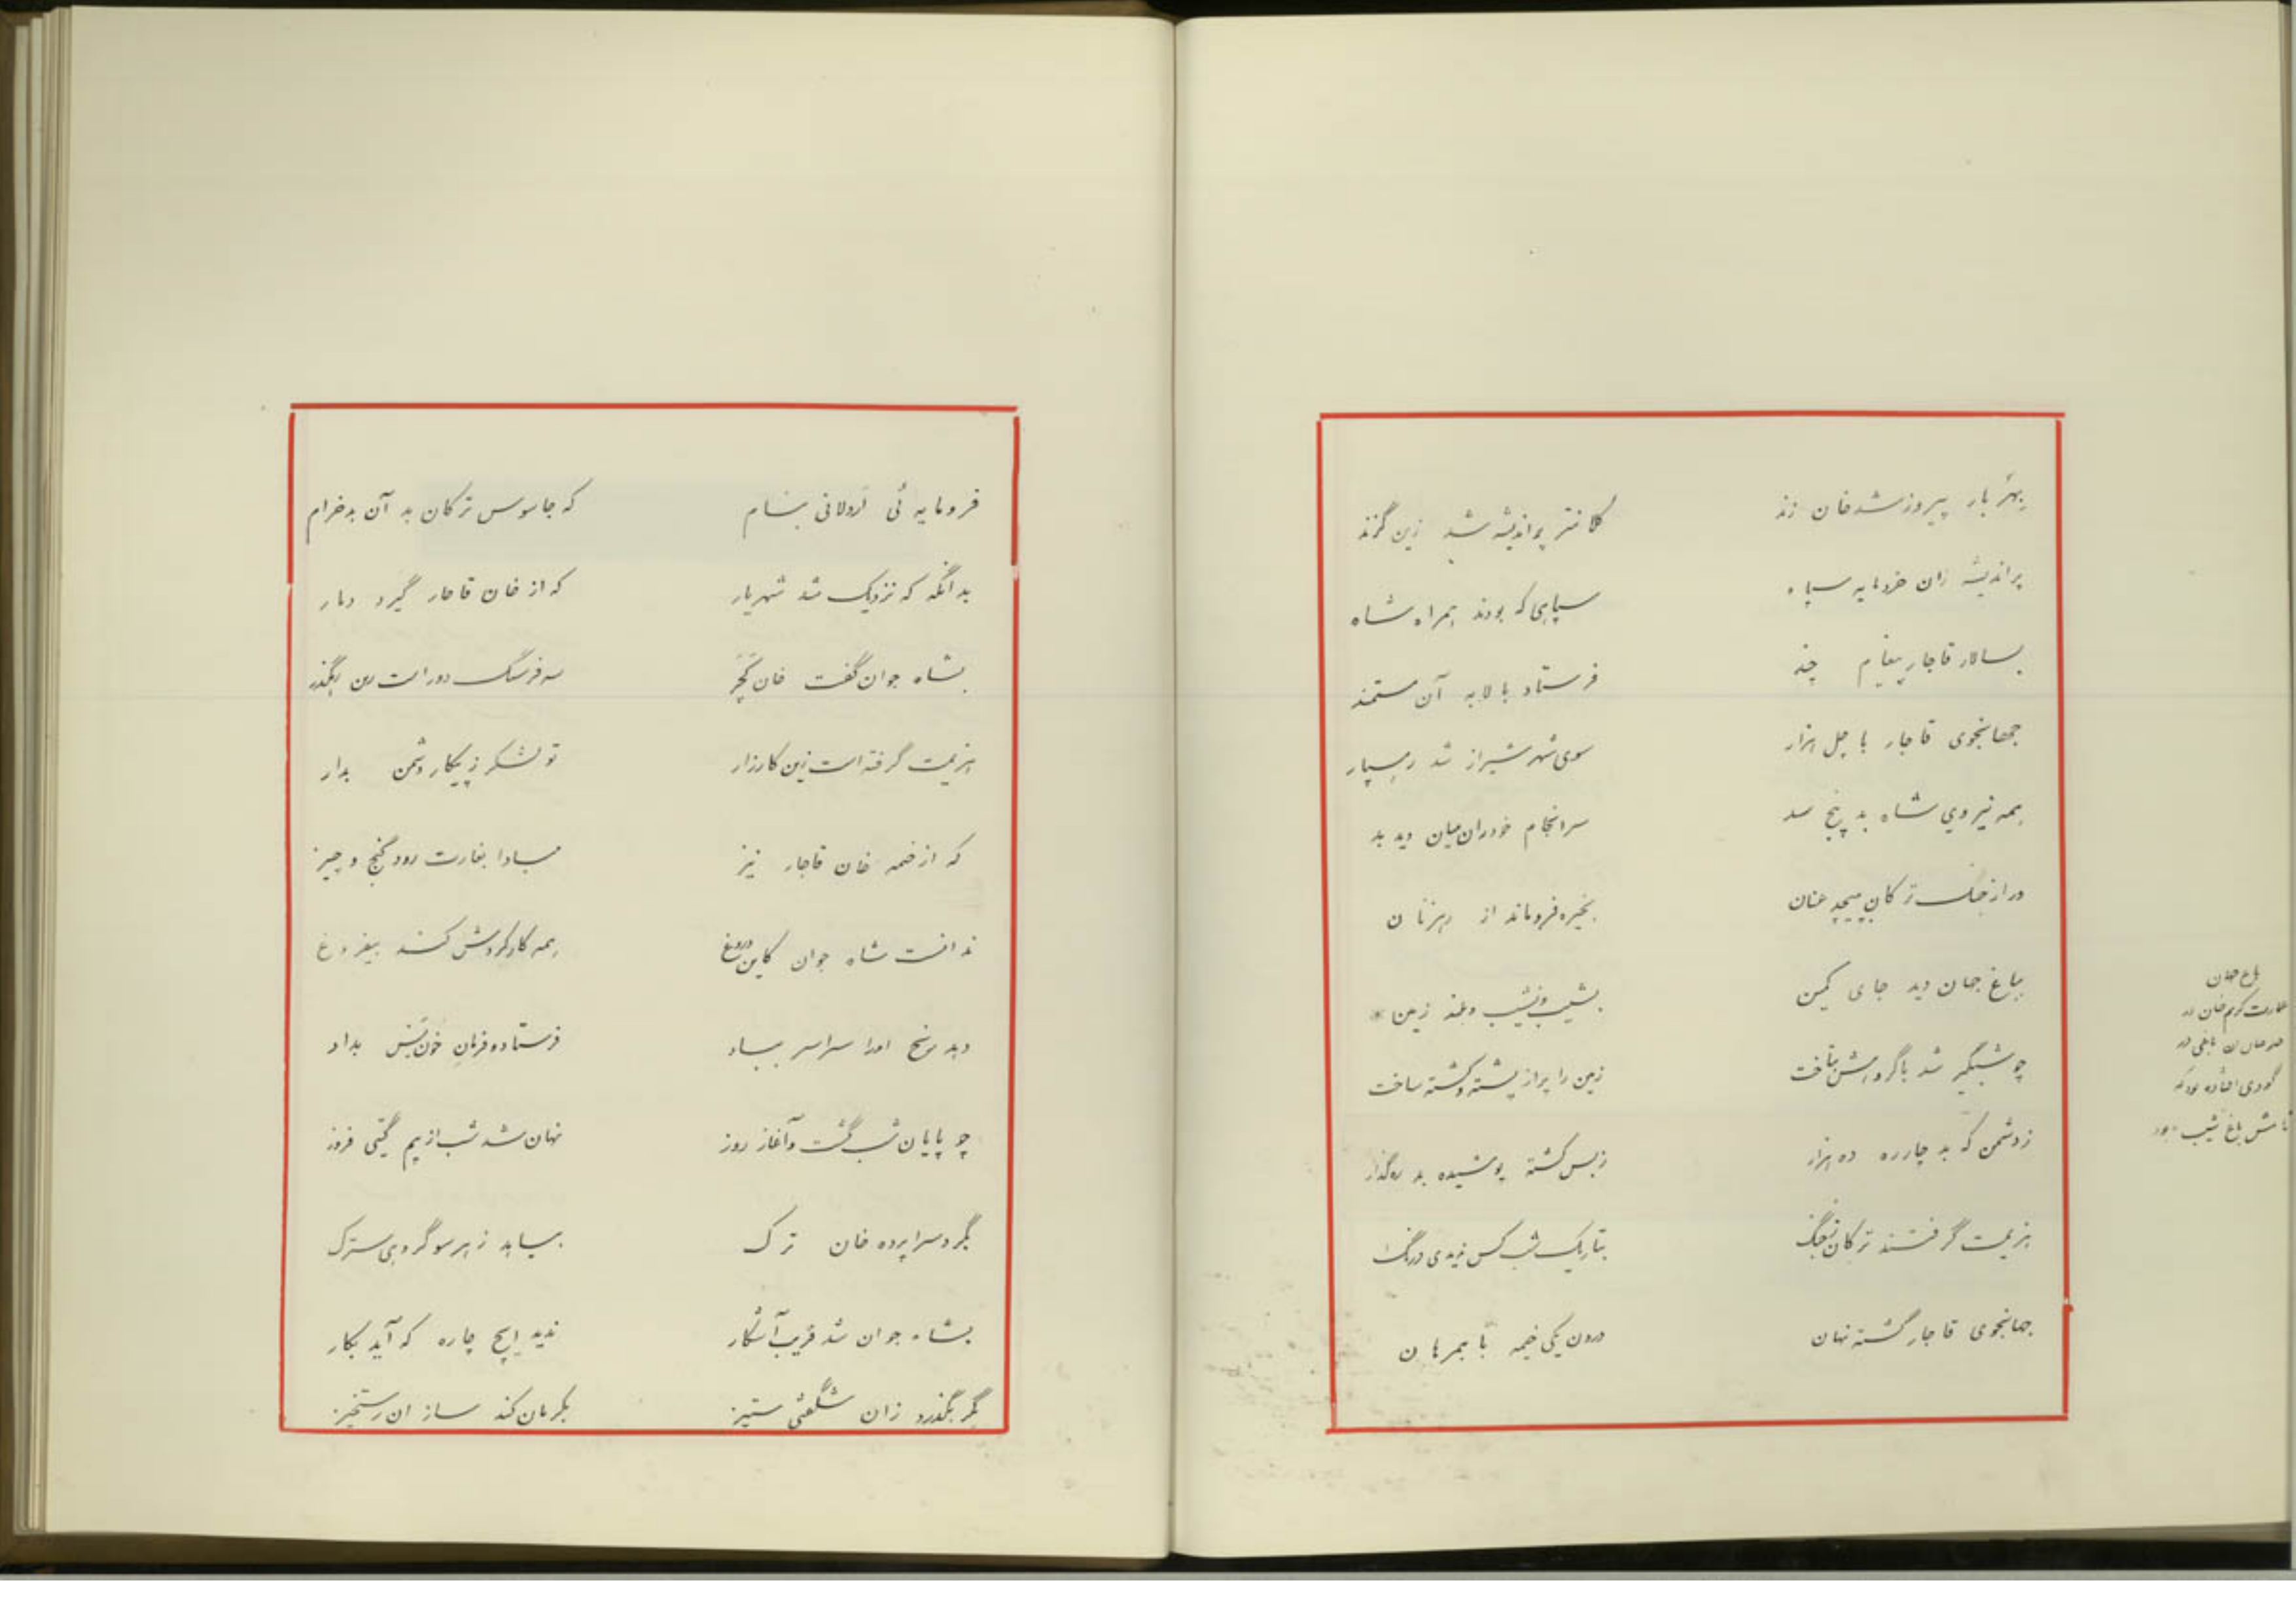 بهر بار پیروز شد خان زند
کلانتر پر اندیشه شد زین گزند
پر اندیشه زان خرد مایه سپاه
سپاهی که بودند همراه شاه
بسالار قاجار پیغام چند
فرستاد با لابه آن مستمند
جهانجوی قاجار با چل هزار
سوی شهر شیراز شد رهسپار
همه نیروی شاه بد پنج سد
سرانجام خود ران میان دید بد
ور از جنگ ترکان بپیچد عنان
بخیره فروماند از رهزنان
بباغ جهان دید جای کمین
بشیب و نشیب و بلند زمین *
چو شبگیر شد با گروهش بتاخت
زمین را پر از پشته و کشته ساخت
ز دشمن که بد چارره ده هزار
ز بس کشته پوشیده بد رهگذار
هزیمت گرفتند ترکان ز جنگ
بتاریک شب کس ندیدی درنگ
جهانجوی قاجار گشته نهان
درون یکی خیمه با همرهان
باغ جهان
عمارت کریم خان در
باغی در
گودی افتاده بود که
نامش باغ شیب بود
فرومایه ئی اردلانی بنام
که جاسوس ترکان بد آن بدخرام
بدانگه که نزدیک شد شهریار
که از خان قاجار گیرد دمار
بشاه جوان گفت خان قجر
سه فرسنگ دور است زین رهگذر
هزیمت گرفته است زین کارزار
تو لشکر ز پیکار دشمن بدار
که از خیمه خان قاجار نیز
مبادا بغارت رود گنج و چیز
ندانست شاه جوان کاین دروغ
همه کار کردش کند بیفروغ
دهد رنج او را سراسر بباد
فرستاده فرمان خون بداد
چو پایان شب گشت و آغاز روز
نهان شد شب از بیم گیتی فروز
بگرد سراپرده خان ترک
بیامد ز هر سو گروهی سترک
بشاه جوان شد فریب آشکار
ندید ایچ چاره که آید بکار
مگر بگذرد زان شگفتی ستیز
بکرمان کند ساز آن رستخیز